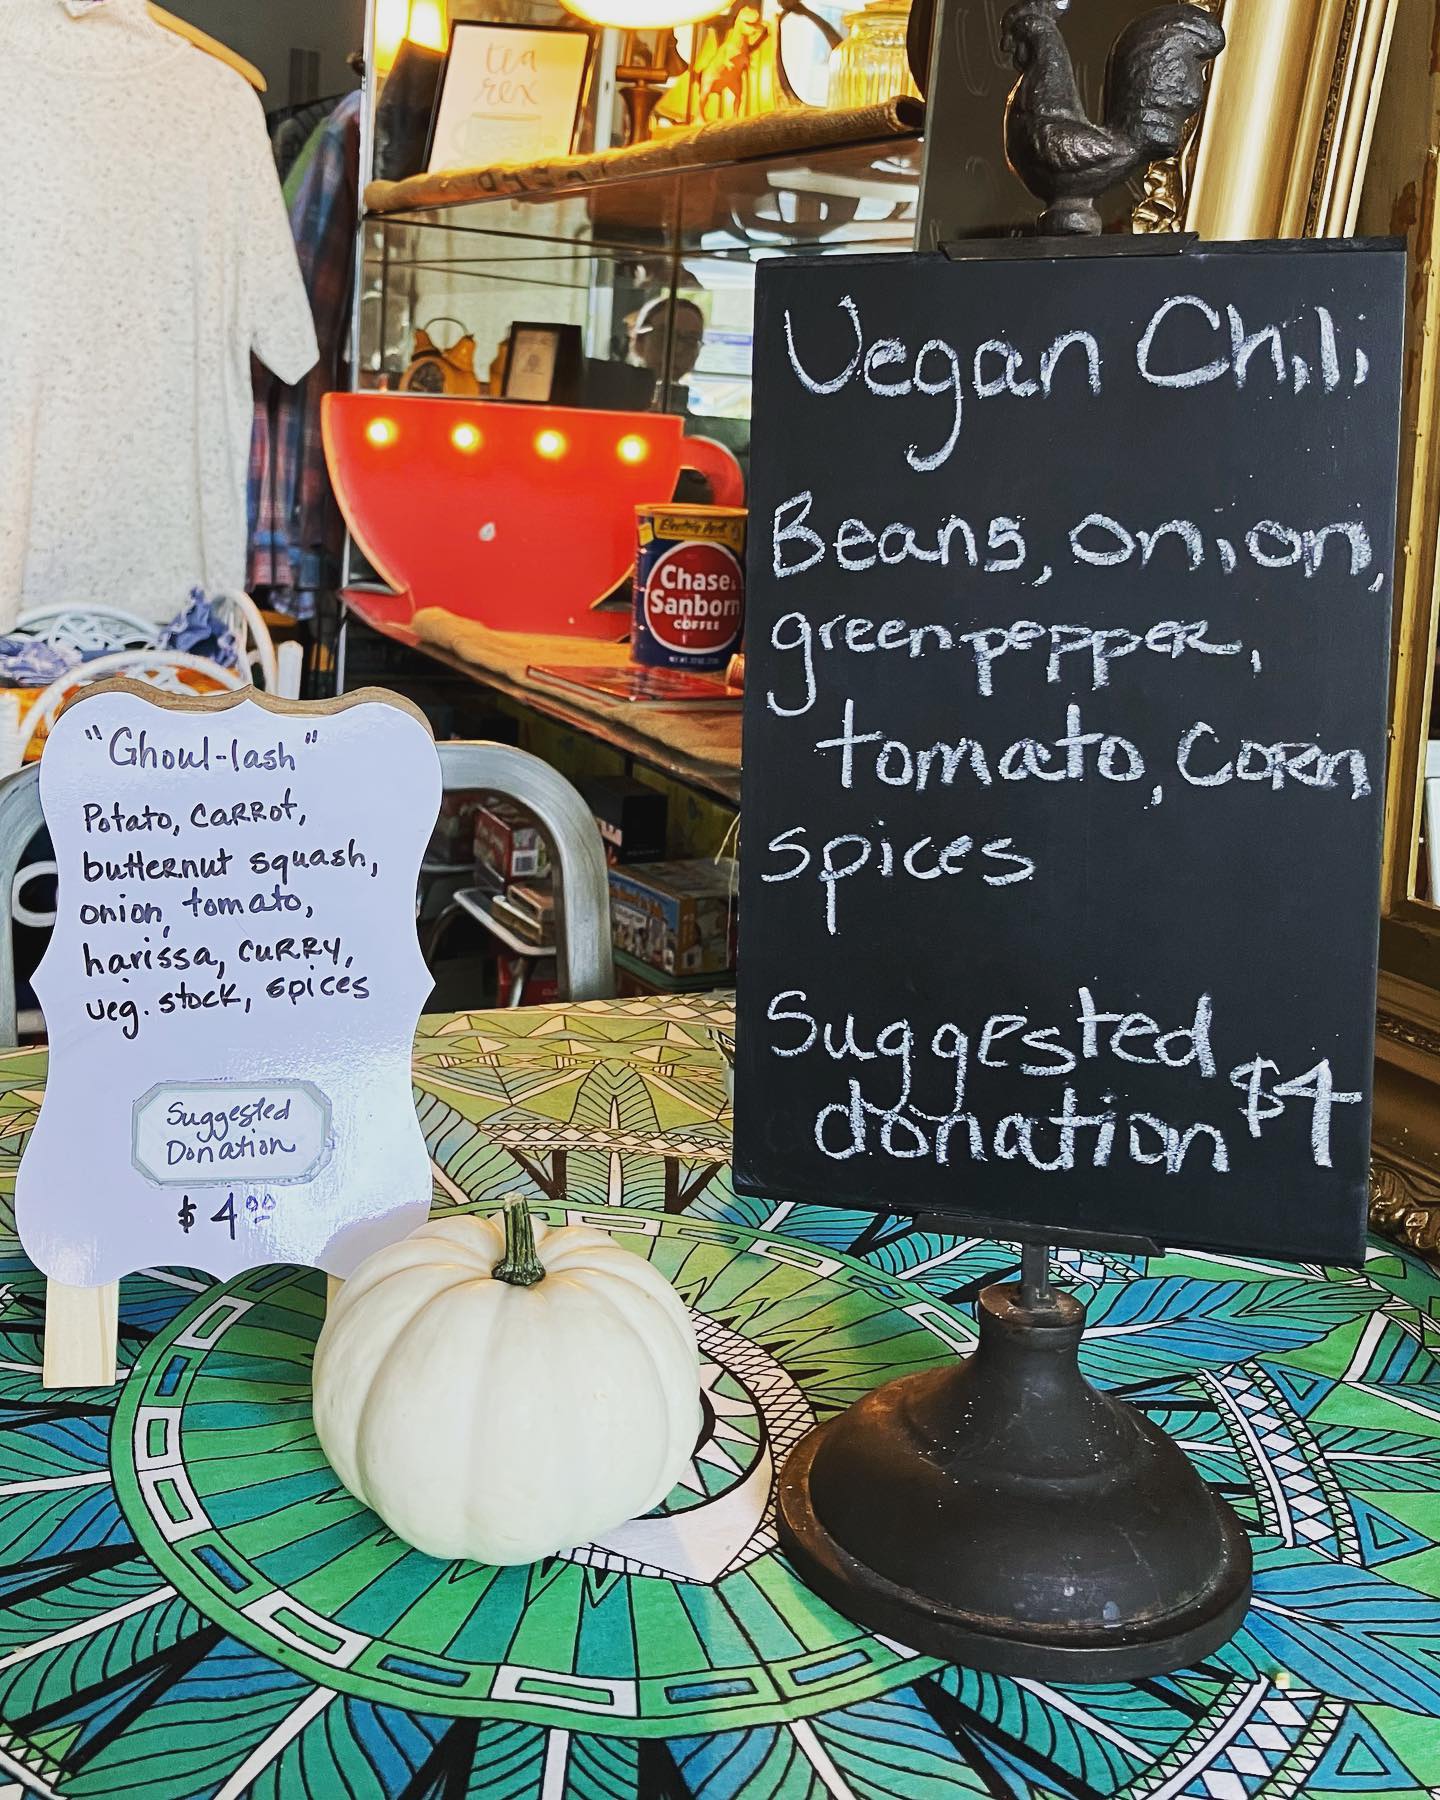 tea
rex
Chase &
Sanborn
COFFEE
"Ghoul-lash"
Potato, carrot,
butternut squash,
onion, tomato,
harissa, curry,
veg. stock, spices
Suggested
Donation
$4.00
Vegan Chili
Beans, onion,
green pepper,
tomato, corn
spices
Suggested
donation $4